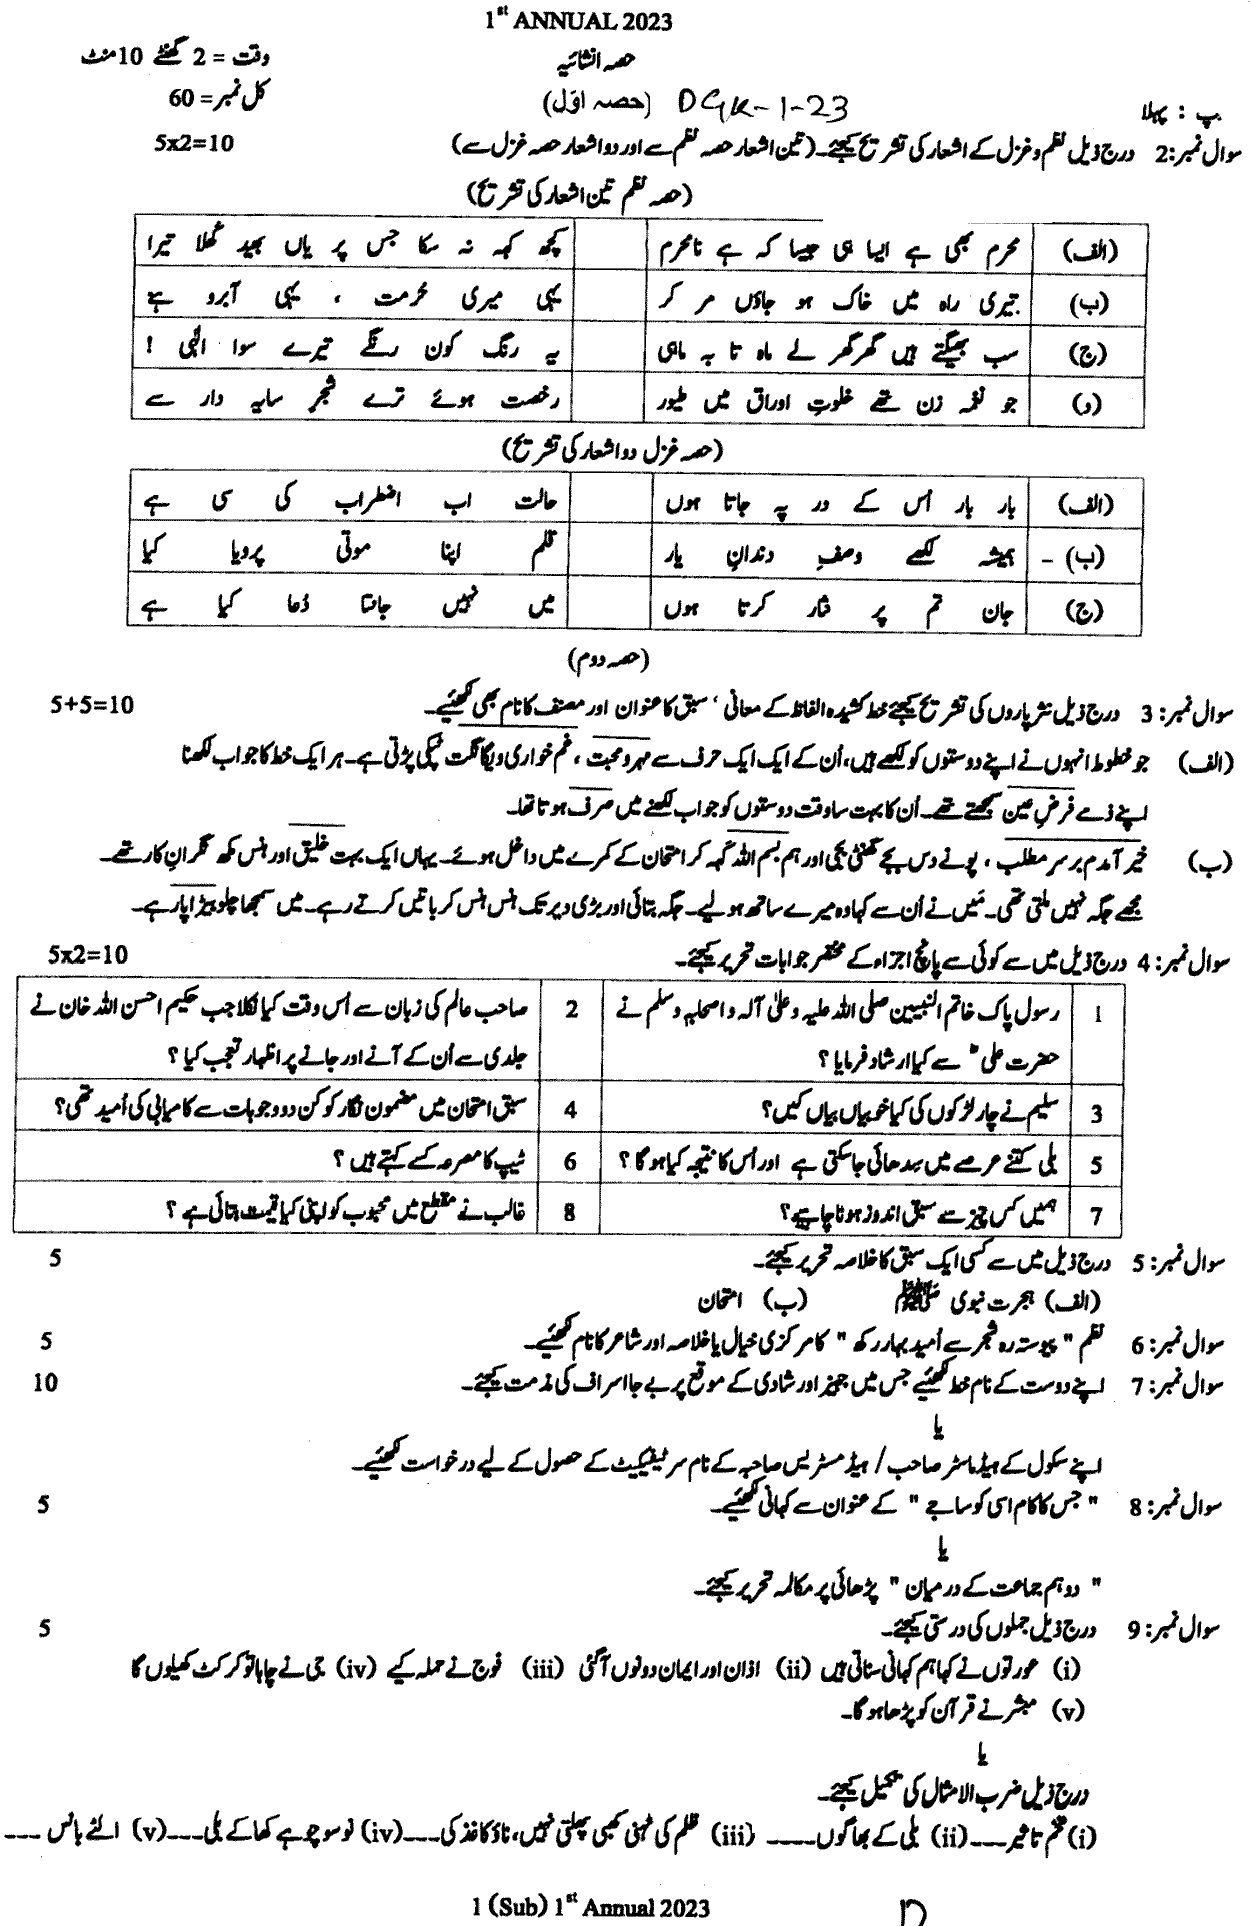 1st ANNUAL 2023
حصہ انشائیہ
وقت = 2 گھنٹے 10 منٹ
کل نمبر = 60
پ : پہلا (حصہ اوّل) DGK-1-23
سوال نمبر: 2 درج ذیل نظم و غزل کے اشعار کی تشریح کیجئے۔ (تین اشعار حصہ نظم سے اور دو اشعار حصہ غزل سے) 5x2=10
(حصہ نظم تین اشعار کی تشریح)
(الف) محرم بھی ہے ایسا ہی جیسا کہ ہے نامحرم کچھ کہہ نہ سکا جس پر یاں بھید کُھلا تیرا
(ب) تیری راہ میں خاک ہو جاؤں مر کر یہی میری حُرمت ، یہی آبرو ہے
(ج) سب بھیگتے ہیں گھر گھر لے ماہ تا بہ ماہی یہ رنگ کون رنگے تیرے سوا الٰہی !
(د) جو نغمہ زن تھے خلوتِ اوراق میں طیور رخصت ہوئے ترے شجرِ سایہ دار سے
(حصہ غزل دو اشعار کی تشریح)
(الف) بار بار اُس کے در پہ جاتا ہوں حالت اب اضطراب کی سی ہے
(ب) - ہمیشہ لکھے وصفِ دندانِ یار قلم اپنا موتی پرویا کیا
(ج) جان تم پر نثار کرتا ہوں میں نہیں جانتا دُعا کیا ہے
(حصہ دوم)
سوال نمبر: 3 درج ذیل نثر پاروں کی تشریح کیجئے خط کشیدہ الفاظ کے معانی ' سبق کا عنوان اور مصنف کا نام بھی لکھئیے۔ 5+5=10
(الف) جو خطوط انہوں نے اپنے دوستوں کو لکھے ہیں، اُن کے ایک ایک حرف سے مہر و محبت ، غم خواری و یگانگت ٹپکی پڑتی ہے۔ ہر ایک خط کا جواب لکھنا
اپنے ذمے فرضِ عین سمجھتے تھے۔ اُن کا بہت سا وقت دوستوں کو جواب لکھنے میں صرف ہوتا تھا۔
(ب) خیر آمدم بر سرِ مطلب ، پونے دس بجے گھنٹی بجی اور ہم بسم اللہ کہہ کر امتحان کے کمرے میں داخل ہوئے۔ یہاں ایک بہت خلیق اور ہنس مکھ نگران کار تھے۔
مجھے جگہ نہیں ملتی تھی۔ مَیں نے اُن سے کہا وہ میرے ساتھ ہو لیے۔ جگہ بتائی اور بڑی دیر تک ہنس ہنس کر باتیں کرتے رہے۔ میں سمجھا چلو بیڑا پار ہے۔
سوال نمبر: 4 درج ذیل میں سے کوئی سے پانچ اجزاء کے مختصر جوابات تحریر کیجئے۔ 5x2=10
1 رسول پاک خاتم النبیین صلی اللہ علیہ وعلیٰ آلہ واصحابہ وسلم نے
حضرت علی ؓ سے کیا ارشاد فرمایا ؟
2 صاحب عالم کی زبان سے اُس وقت کیا نکلا جب حکیم احسن اللہ خان نے
جلدی سے اُن کے آنے اور جانے پر اظہار تعجب کیا ؟
3 سلیم نے چار لڑکوں کی کیا خوبیاں بیاں کیں؟
4 سبق امتحان میں مضمون نگار کو کن دو وجوہات سے کامیابی کی اُمید تھی؟
5 بلی کتنے عرصے میں سدھائی جا سکتی ہے اور اُس کا نتیجہ کیا ہو گا ؟
6 ٹیپ کا مصرعہ کسے کہتے ہیں ؟
7 ہمیں کس چیز سے سبق اندوز ہونا چاہیے؟
8 غالب نے مقطع میں محبوب کو اپنی کیا قیمت بتائی ہے ؟
سوال نمبر: 5 درج ذیل میں سے کسی ایک سبق کا خلاصہ تحریر کیجئے۔ 5
(الف) ہجرت نبوی ﷺ (ب) امتحان
سوال نمبر: 6 نظم " پیوستہ رہ شجر سے اُمید بہار رکھ " کا مرکزی خیال یا خلاصہ اور شاعر کا نام لکھئیے۔ 5
سوال نمبر: 7 اپنے دوست کے نام خط لکھئیے جس میں جہیز اور شادی کے موقع پر بے جا اسراف کی مذمت کیجئے۔ 10
یا
اپنے سکول کے ہیڈ ماسٹر صاحب / ہیڈ مسٹریس صاحبہ کے نام سرٹیفیکیٹ کے حصول کے لیے درخواست لکھئیے۔
سوال نمبر: 8 " جس کا کام اسی کو ساجے " کے عنوان سے کہانی لکھئیے۔ 5
یا
" دو ہم جماعت کے درمیان " پڑھائی پر مکالمہ تحریر کیجئے۔
سوال نمبر: 9 درج ذیل جملوں کی درستی کیجئے۔ 5
(i) عورتوں نے کہا ہم کہانی سناتی ہیں (ii) اذان اور ایمان دونوں آ گئی (iii) فوج نے حملہ کیے (iv) جی نے چاہا تو کرکٹ کھیلوں گا
(v) مبشر نے قرآن کو پڑھا ہو گا۔
یا
درج ذیل ضرب الامثال کی تکمیل کیجئے۔
(i) تخم تاثیر--- (ii) بلی کے بھاگوں---- (iii) ظلم کی ٹہنی کبھی پھلتی نہیں، ناؤ کاغذ کی--- (iv) نو سو چوہے کھا کے بلی--- (v) الٹے بانس ---
1 (Sub) 1st Annual 2023